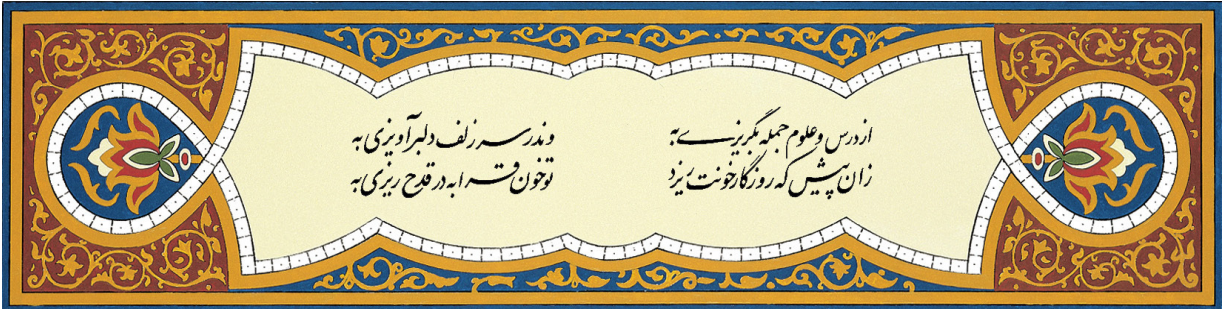 از درس و علوم جمله بگریزی به	و ندر سر زلف دلبر آویزی به
زان پیش که روزگار خونت ریزد	تو خون قرابه در قدح ریزی به